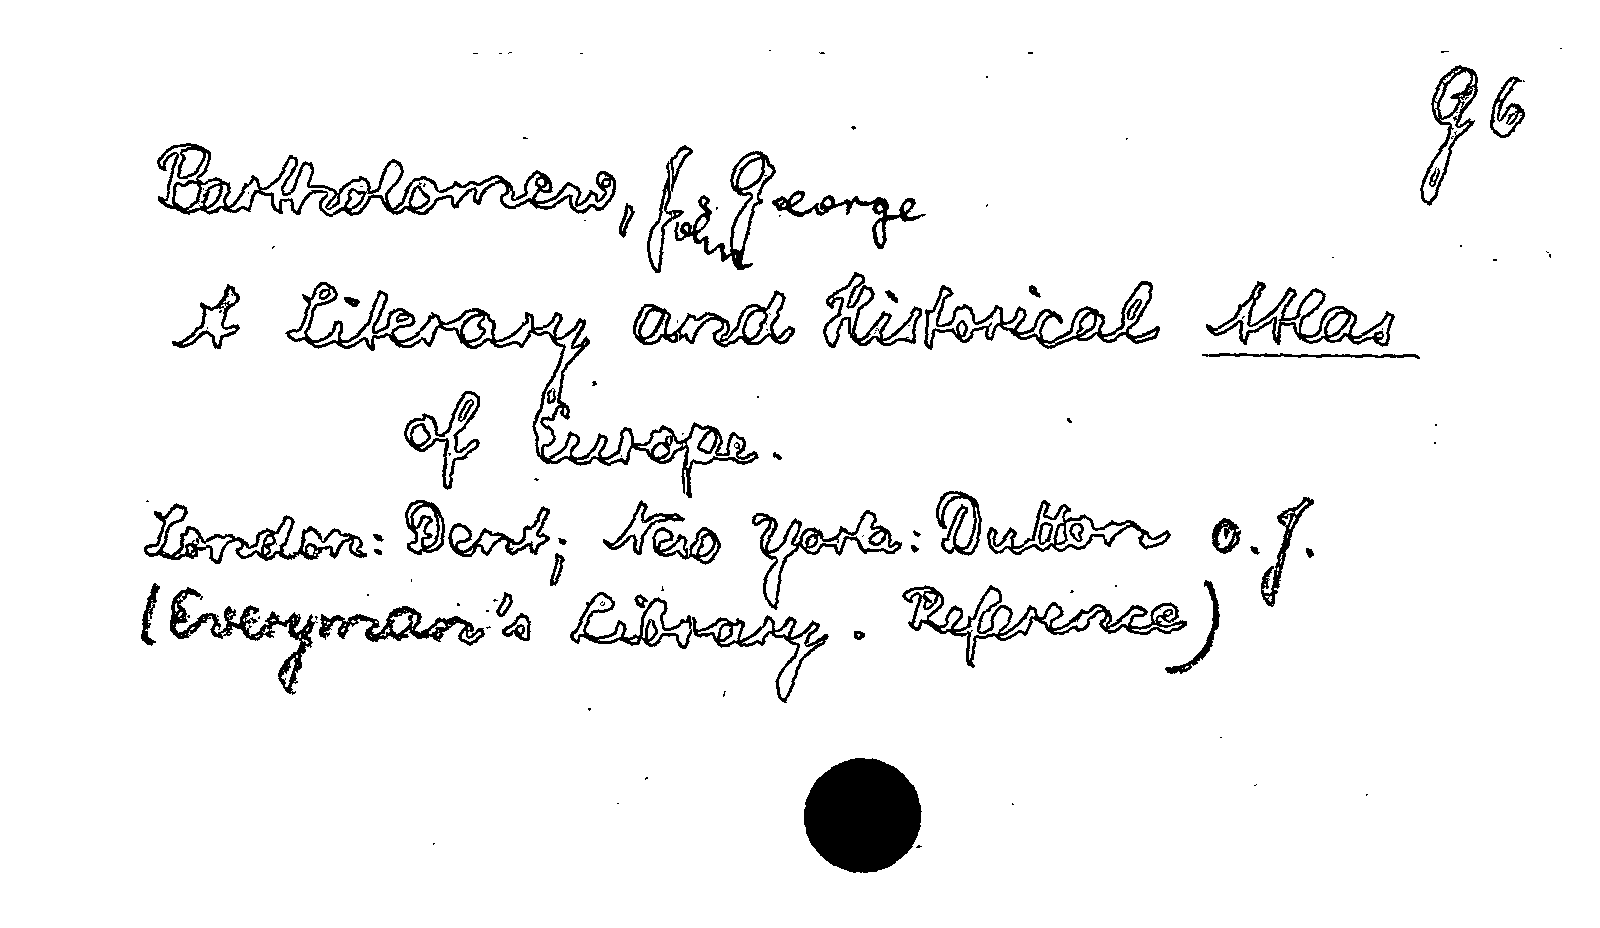 g 6
Bartholomew, John George
A Literary and Historical Atlas
of Europe.
London: Dent; New York: Dutton o.J.
(Everyman's Library. Reference)